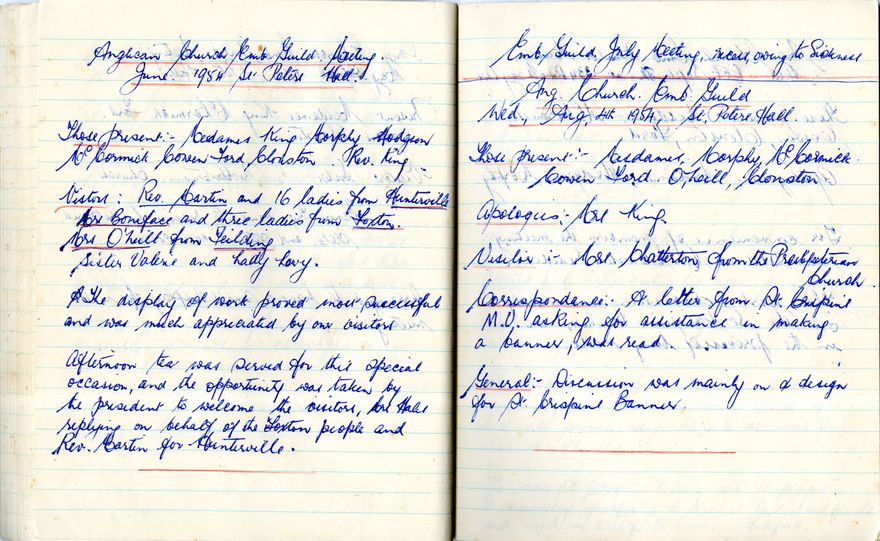 Anglican Church Emb. Guild. Meeting.
June. 1954 St. Peters Hall.
Those present:- Mesdames King Morphy Hodgson
McCormick Cowen Ford, Clonston. Rev. King
Vistors: Rev. Martin and 16 ladies from Hunterville
Mrs Boniface and three ladies from Foxton.
Mrs O'Neill from Feilding
Sister Valerie and Lady Lovy.
The display of work proved most successful
and was much appreciated by our visitors
Afternoon tea was served for this special
occasion, and the opportunity was taken by
the president to welcome the visitors, Mrs Hales
replying on behalf of the Foxton people and
Rev. Martin for Hunterville.
Emb. Guild July Meeting, recess owing to Sickness
Ang. Church. Emb. Guild
Wed, Aug, 4th 1954, St. Peters Hall.
Those present:- Mesdames, Morphy, McCormick.
Cowen Ford. O'Neill, Clonston
Apologies:- Mrs King.
Visitor:- Mrs. Chatterton, from the Presbyterian
Church.
Correspondance:- A letter from St. Crispins
M.U. asking for assistance in making
a banner, was read
General:- Discussion was mainly on a design
for St. Crispins Banner.